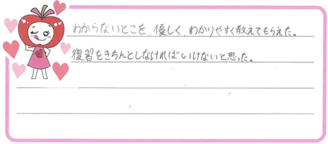 わからないとこを、優しく、わかりやすく教えてもらえた。
復習をきちんとしなければいけないと思った。